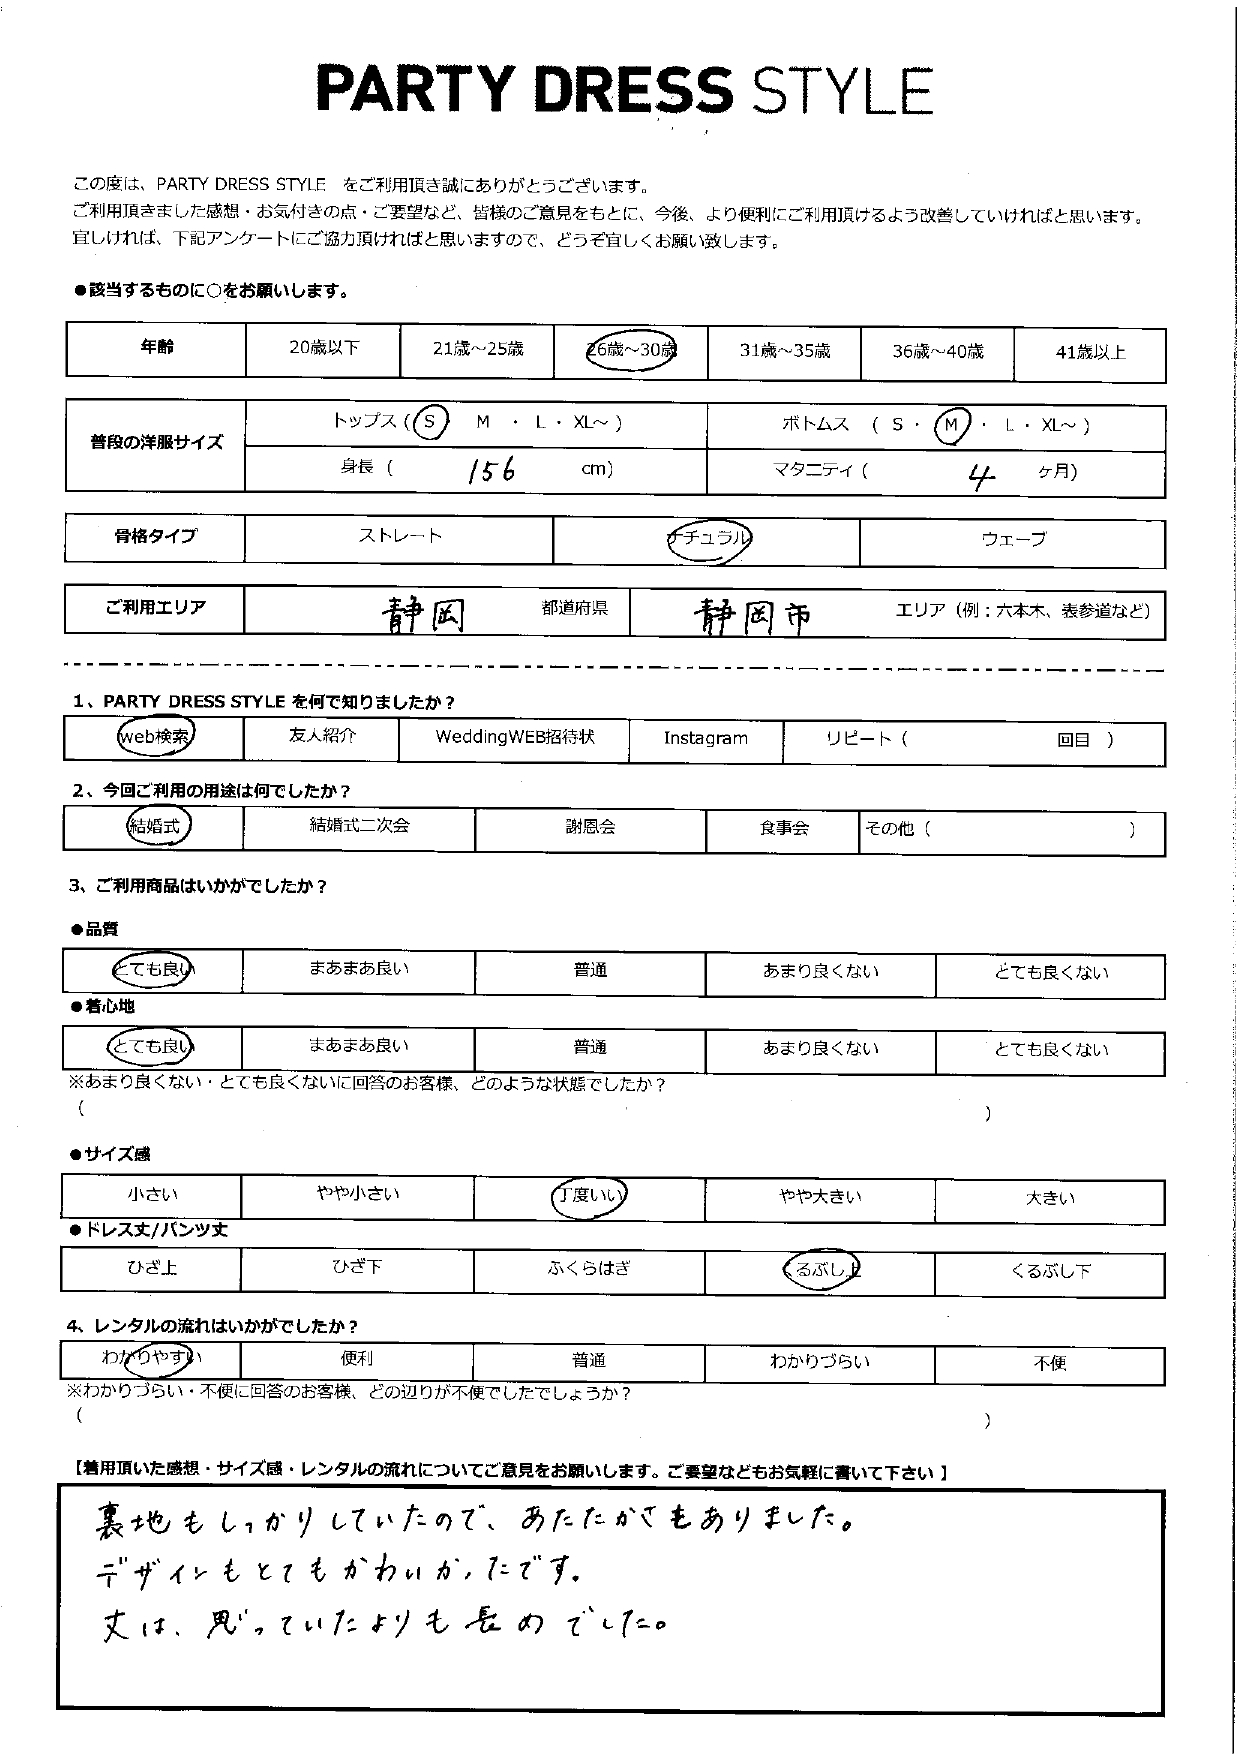 PARTY DRESS STYLE
この度は、PARTY DRESS STYLE をご利用頂き誠にありがとうございます。
ご利用頂きました感想・お気付きの点・ご要望など、皆様のご意見をもとに、今後、より便利にご利用頂けるよう改善していければと思います。
宜しければ、下記アンケートにご協力頂ければと思いますので、どうぞ宜しくお願い致します。
●該当するものに○をお願いします。
年齢 20歳以下 21歳～25歳 26歳～30歳 31歳～35歳 36歳～40歳 41歳以上
普段の洋服サイズ
トップス ( S M ・ L ・ XL～ ) ボトムス ( S ・ M ・ L ・ XL～ )
身長 ( 156 cm) マタニティ ( 4 ヶ月)
骨格タイプ ストレート ナチュラル ウェーブ
ご利用エリア 静岡 都道府県 静岡市 エリア（例：六本木、表参道など）
1、PARTY DRESS STYLE を何で知りましたか？
web検索 友人紹介 WeddingWEB招待状 Instagram リピート ( 回目 )
2、今回ご利用の用途は何でしたか？
結婚式 結婚式二次会 謝恩会 食事会 その他 ( )
3、ご利用商品はいかがでしたか？
●品質
とても良い まあまあ良い 普通 あまり良くない とても良くない
●着心地
とても良い まあまあ良い 普通 あまり良くない とても良くない
※あまり良くない・とても良くないに回答のお客様、どのような状態でしたか？
( )
●サイズ感
小さい やや小さい 丁度いい やや大きい 大きい
●ドレス丈/パンツ丈
ひざ上 ひざ下 ふくらはぎ くるぶし上 くるぶし下
4、レンタルの流れはいかがでしたか？
わかりやすい 便利 普通 わかりづらい 不便
※わかりづらい・不便に回答のお客様、どの辺りが不便でしたでしょうか？
( )
【着用頂いた感想・サイズ感・レンタルの流れについてご意見をお願いします。ご要望などもお気軽に書いて下さい】
裏地もしっかりしていたので、あたたかさもありました。
デザインもとてもかわいかったです。
丈は、思っていたよりも長めでした。